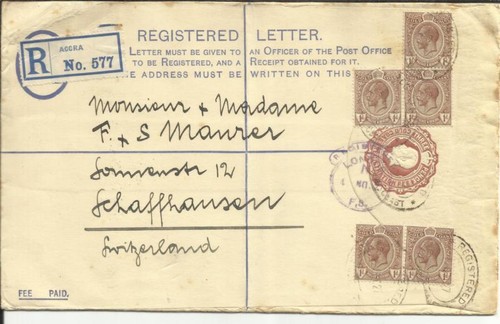 REGISTERED LETTER.
LETTER MUST BE GIVEN TO AN OFFICER OF THE POST OFFICE
TO BE REGISTERED, AND A RECEIPT OBTAINED FOR IT.
E ADDRESS MUST BE WRITTEN ON THIS
R ACCRA
No. 577
Monsieur & Madame
F. & S Maurer
Sonnenstr 12
Schaffhausen
Switzerland
FEE PAID.
REGISTERED